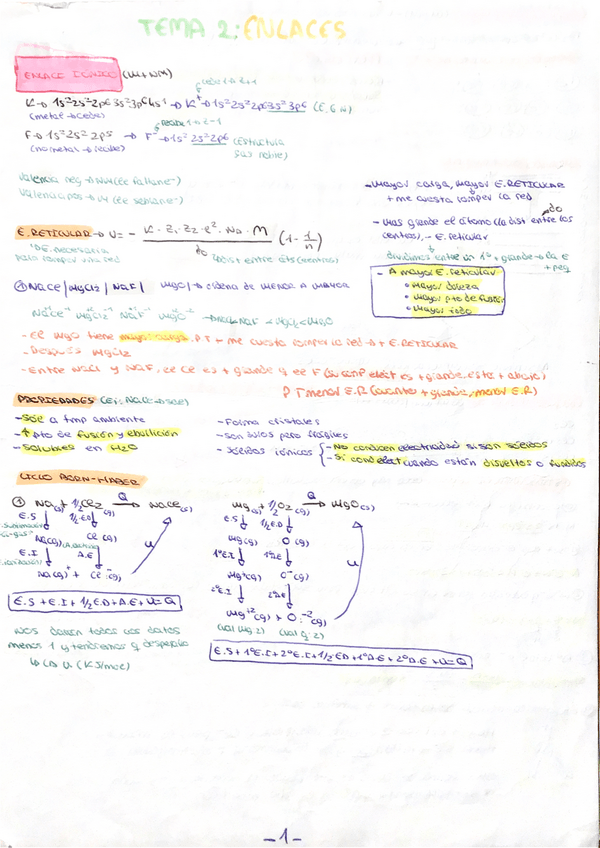 TEMA 2: ENLACES
ENLACE IÓNICO (M+NM)
cede 1 e⁻ z+1
K → 1s²2s²2p⁶3s²3p⁶4s¹ → K⁺ → 1s²2s²2p⁶3s²3p⁶ (E. G N)
(metal → cede)
recibe 1 e⁻ z-1
F → 1s²2s²2p⁵ → F⁻ → 1s²2s²2p⁶ (estructura
(no metal → recibe)
gas noble)
Valencia neg → NM (le faltan e⁻)
Valencia pos → M (le sobran e⁻)
- Mayor carga, mayor E.RETICULAR
+ me cuesta romper la red
- Mas grande el átomo (la dist entre los
do
centros), - E. reticular
dividimos entre un nº + grande → la E
+ peq
- A mayor E. reticular
• mayor dureza
• mayor pto de fusión
• mayor
E. RETICULAR → U = - K · Z₁ · Z₂ · e² · Na · M / do (1 - 1/n)
ºDE necesaria
para romper una red
dist entre (centros)
① NaCl / MgCl₂ / NaF / MgO → ordena de MENOR A MAYOR
Na⁺¹Cl⁻¹ Mg⁺²Cl₂⁻¹ Na⁺¹F⁻¹ Mg⁺²O⁻² → NaCl < NaF < MgCl₂ < MgO
- El MgO tiene mayor carga. P.T + me cuesta romper la red → + E. RETICULAR
- Después MgCl₂
- Entre NaCl y NaF, el Cl es + grande q el F (su conf elect es + grande, esta + abajo)
P T menor E.R (cuanto + grande, menor E.R)
PROPIEDADES (Ej: NaCl → sal)
- Sól a tmp ambiente
- ↑ pto de fusión y ebullición
- solubles en H₂O
- Forma cristales
- son duros pero frágiles
- Sólidos iónicos { - No conducen electricidad si son sólidos
- Sí cond elect cuando están disueltos o fundidos
CICLO BORN-HABER
① Na(s) + 1/2 Cl₂(g) —Q→ NaCl(s)
E.S ↓ 1/2 E.D ↓
Na(g) Cl(g)
E.I ↓ A.E ↓
U
Na(g)⁺ + Cl⁻(g)
E.S + E.I + 1/2 E.D + A.E + U = Q
Nos darán todos los datos
menos 1 y tendremos q despejarlo
↳ la U (KJ/mol)
Mg(s) + 1/2 O₂(g) —Q→ MgO(s)
E.S ↓ 1/2 E.D ↓
Mg(g) O(g)
1ºE.I ↓ 1ªA.E ↓
Mg⁺(g) O⁻(g)
2ºE.I ↓ 2ªA.E ↓
U
Mg⁺²(g) + O⁻²(g)
(val Mg: 2) (val O: 2)
E.S + 1ºE.I + 2ºE.I + 1/2 E.D + 1ºA.E + 2ºA.E + U = Q
- 1 -